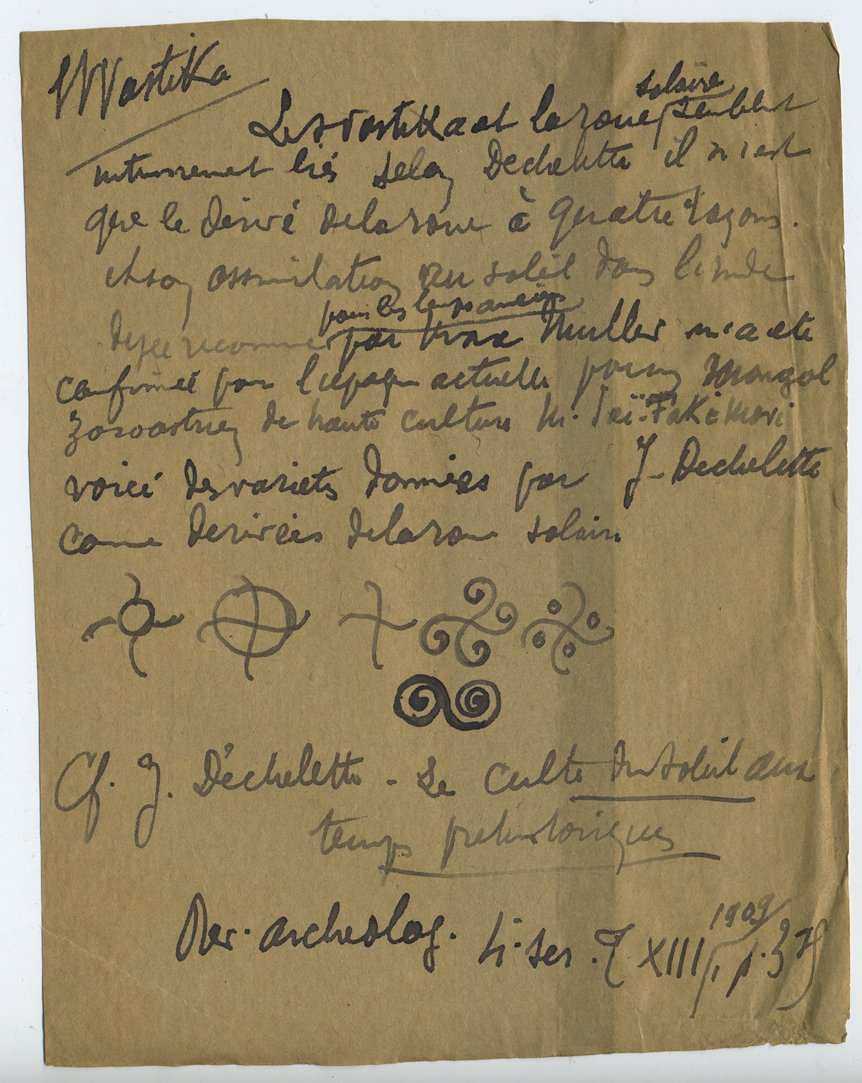 Swastika
Le svastika et la roue solaire semblent
intimement liés selon Dechelette il n'est
que le dérivé de la roue à quatre rayons.
et son assimilation au soleil dans l'inde
deja reconnue pour les temps anciens par Max Muller m'a ete
confirmée par l'epoque actuelle par un mongol
zoroastrien de haute culture M.
voici des varietes données par J. Dechelette
comme derivées de la roue solaire
Cf. J. Déchelette - Le culte du soleil aux
temps prehistoriques
Rev. archeolog. 4e ser. T XIII, 1909 p.